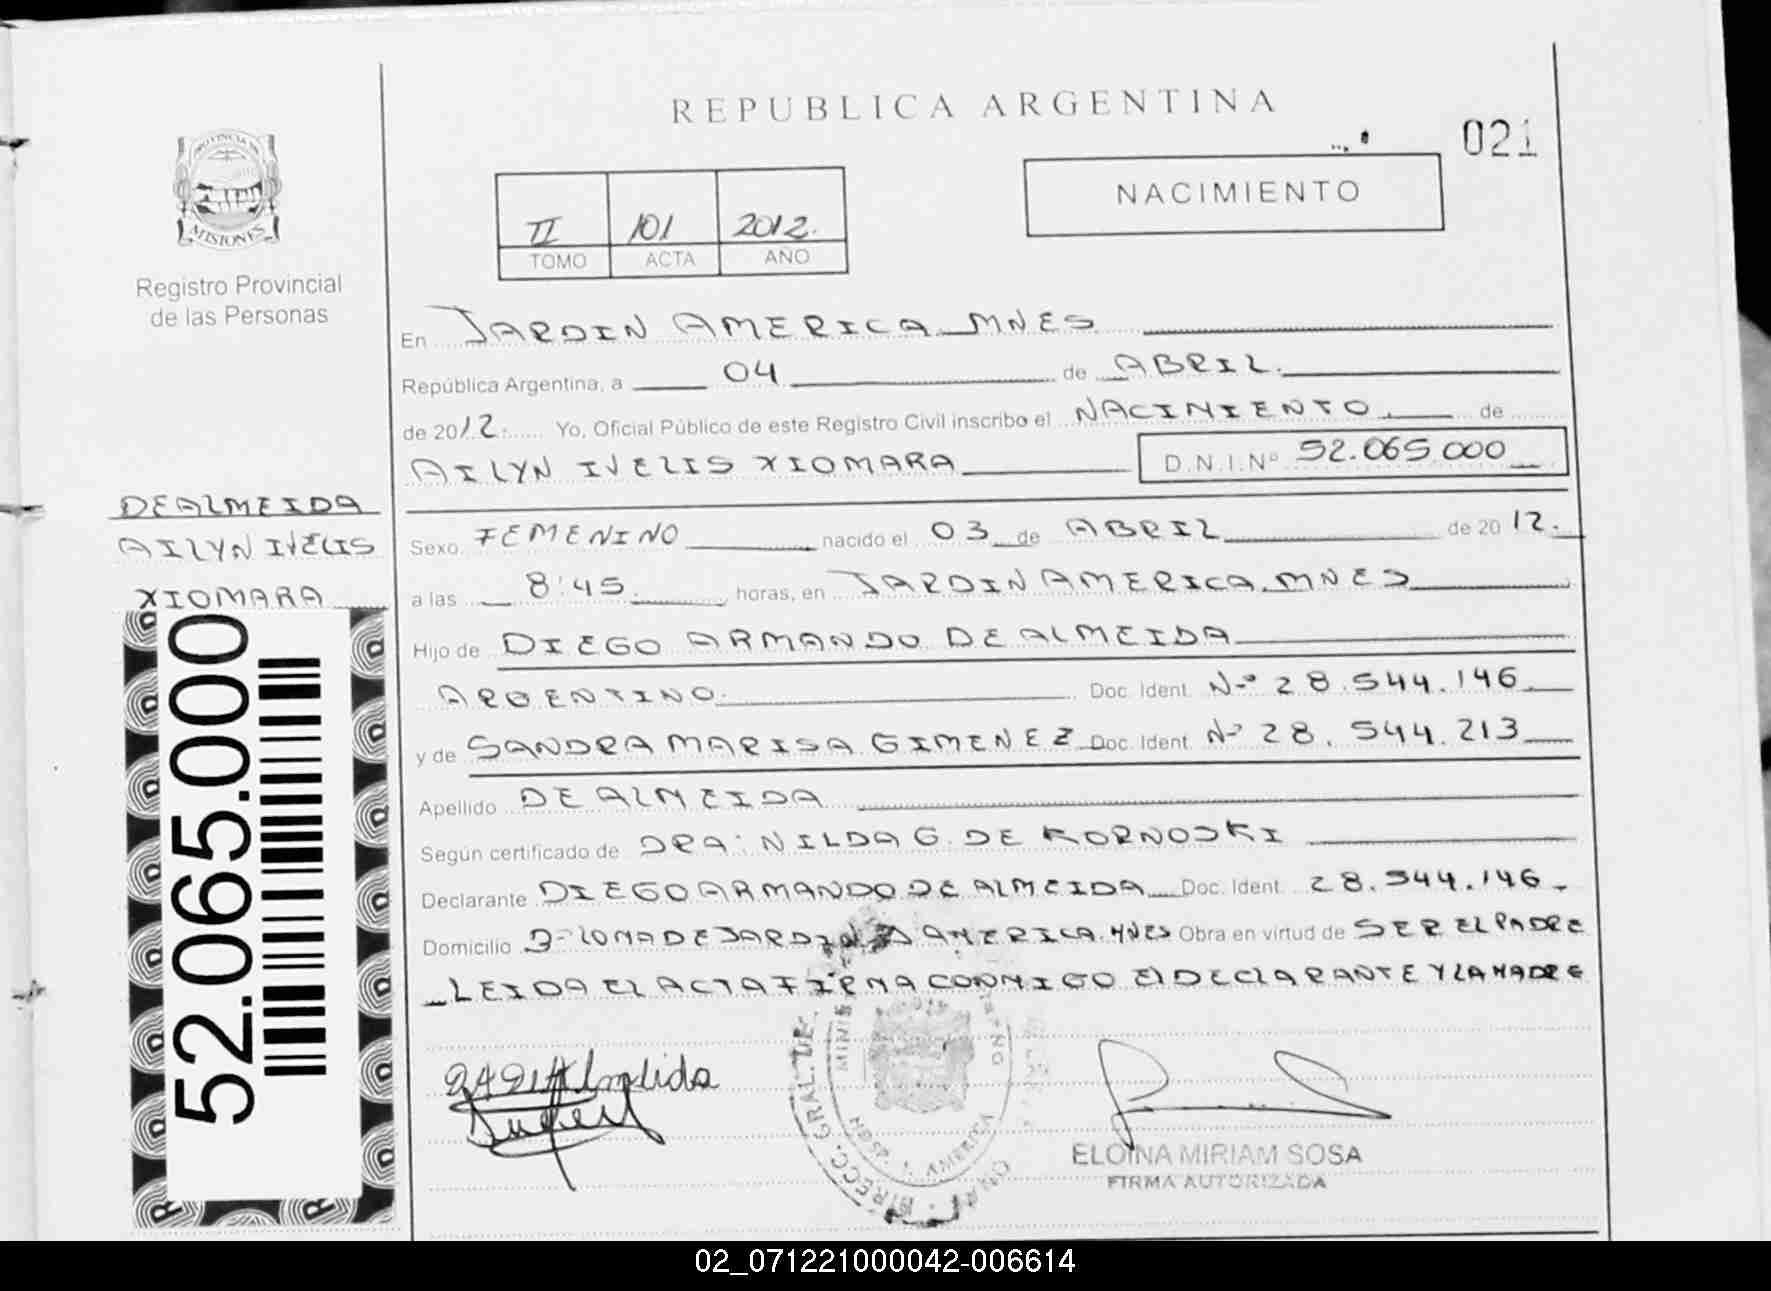 REPUBLICA ARGENTINA
021
PROVINCIA DE
MISIONES
Registro Provincial
de las Personas
NACIMIENTO
II 101 2012.
TOMO ACTA AÑO
En JARDIN AMERICA MNES
República Argentina, a 04 de ABRIL.
de 2012. Yo, Oficial Público de este Registro Civil inscribo el NACIMIENTO. de
AILYN IVELIS XIOMARA D.N.I.Nº 52.065.000
DEALMEIDA
AILYN IVELIS
XIOMARA
52.065.000
Sexo FEMENINO nacido el 03 de ABRIL de 2012.
a las 8:45. horas, en JARDIN AMERICA. MNES
Hijo de DIEGO ARMANDO DE ALMEIDA
ARGENTINO. Doc. Ident. Nº 28.544.146
y de SANDRA MARISA GIMENEZ Doc. Ident. Nº 28.544.213
Apellido DE ALMEIDA
Según certificado de DRA: NILDA G. DE KORNOSKI
Declarante DIEGO ARMANDO DE ALMEIDA Doc. Ident. 28.544.146.
Domicilio Bº LOMA DE JARDIN AMERICA. MNES Obra en virtud de SER EL PADRE
LEIDA EL ACTA FIRMA CONMIGO El DECLARANTE Y LA MADRE
DIRECC. GRAL. DE
HOSP. J. AMERICA
ELOINA MIRIAM SOSA
FIRMA AUTORIZADA
02_071221000042-006614